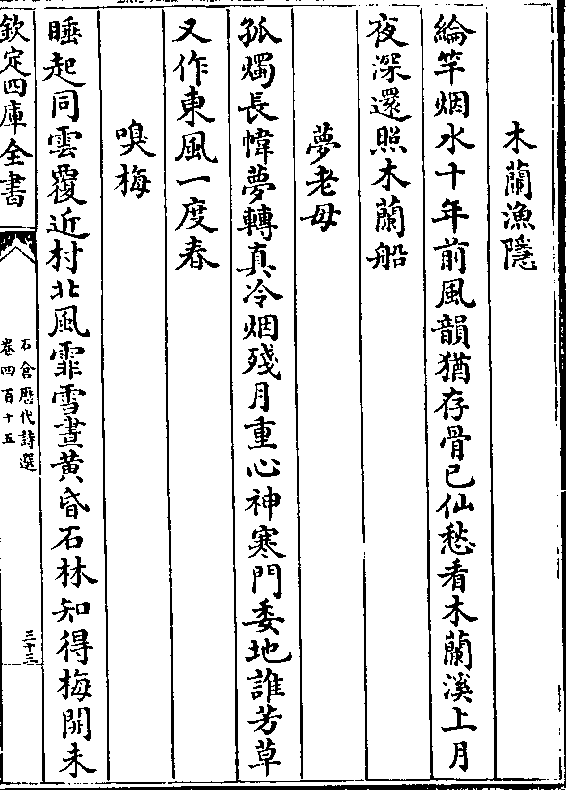 木蘭漁隱
綸竿烟水十年前風韻猶存骨已仙愁看木蘭溪上月
夜深還照木蘭船
夢老母
孤燭長幃夢轉真冷烟殘月重心神寒門委地誰芳草
又作東風一度春
嗅梅
睡起同雲覆近村北風霏雪晝黄昏石林知得梅開未
欽定四庫全書
石倉歴代詩選
卷四百十五
三十三